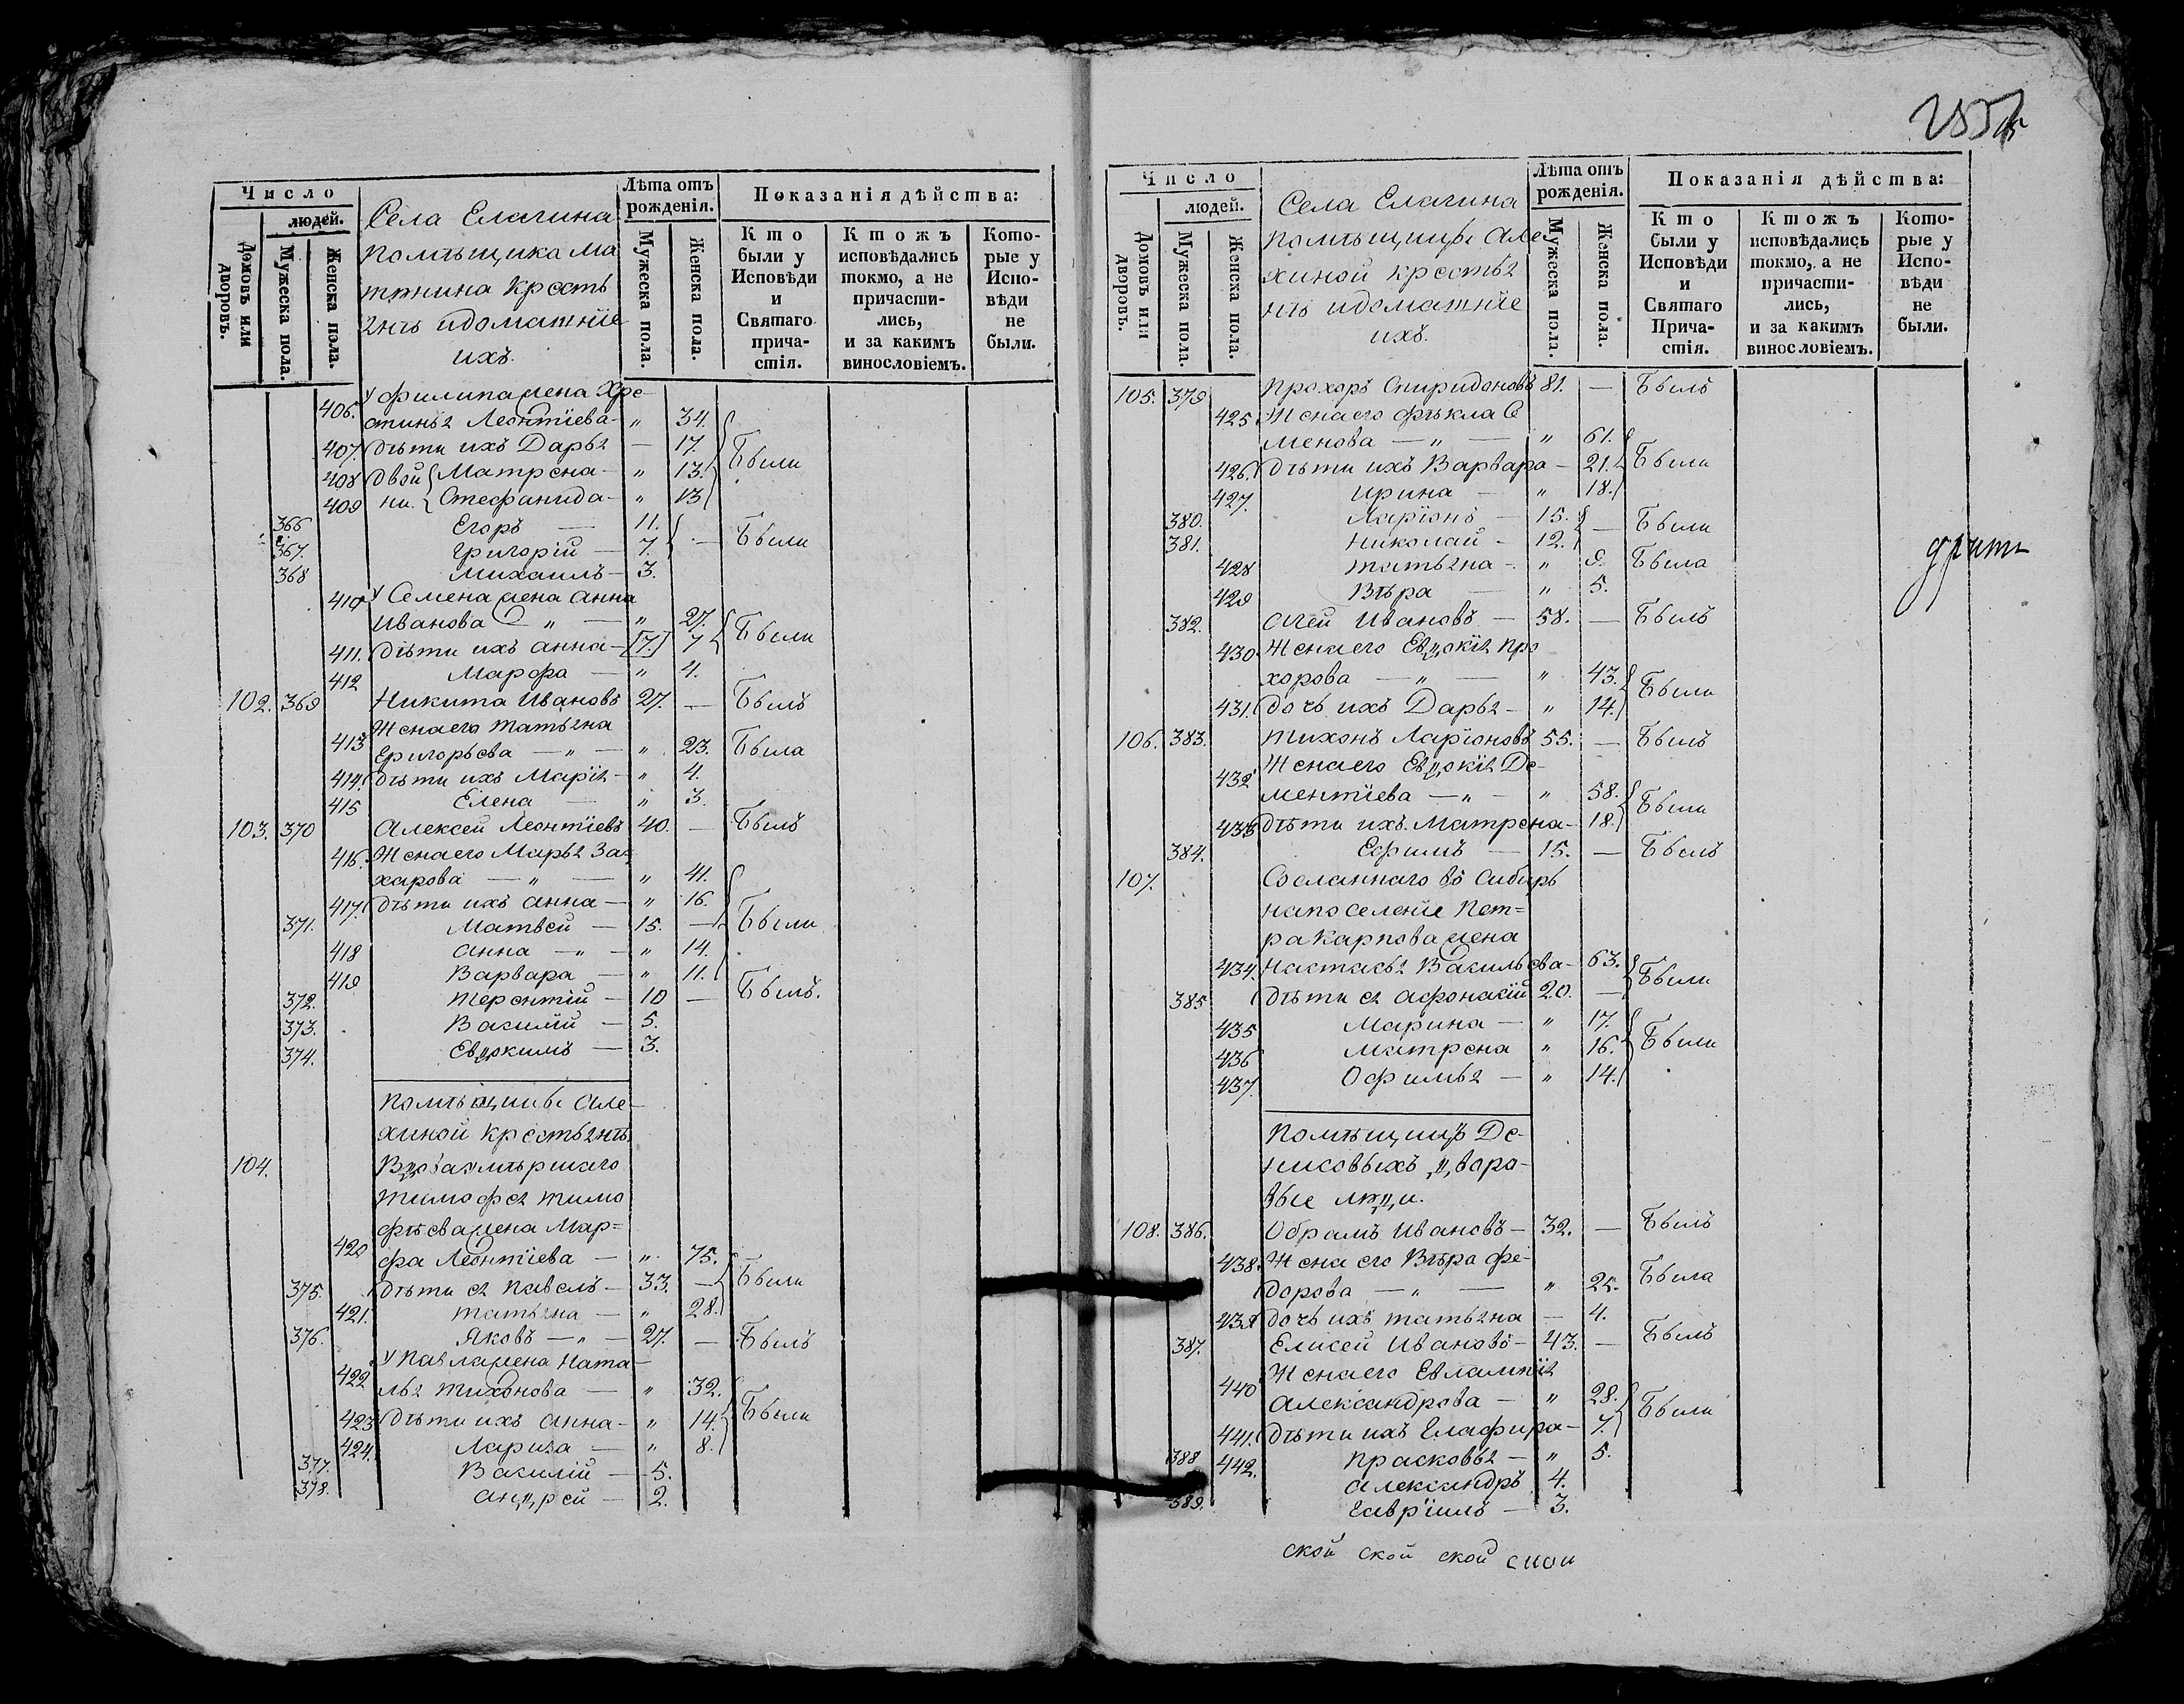 Число
людей.
Домовъ или дворовъ.
Мужеска пола.
Женска пола.
Села Елагина
помѣщика Ма
тюнина крестья
янъ и домашніе
ихъ.
Лѣта отъ рожденія.
Мужеска пола.
Женска пола.
Показанія дѣйства:
Кто были у Исповѣди и Святаго причастія.
Ктожъ исповѣдались токмо, а не причастились, и за какимъ винословіемъ.
Которые у Исповѣди не были.
406. У филипа жена Хре-
стинья Леонтіева - „ 34.
407. дѣти ихъ Дарья — 17.
408 двой { Матрена - „ 13. Были
409 ни. { Стефанида - „ 13
366 Егоръ — 11.
367. Григорій — 7. — Были
368 Михаилъ - 3.
410 У Семена жена Анна
Иванова — „ — „ 27.
411. дѣти ихъ Анна - [7.] 7 Были
412 Марфа — „ 4.
102. 369 Никита Ивановъ 27. — Былъ
413 Жена его Татьяна
Григорьева — „ — „ 23. Была
414. дѣти ихъ Марія - „ 4.
415 Елена — „ 3.
103. 370 Алексей Леонтіевъ 40. — Былъ
416. Жена его Марья За=
харова — „ — „ 41.
417. дѣти ихъ Анна — „ 16.
371. Матвей — 15. — Были
418 Анна — „ — „ 14.
419 Варвара — „ 11.
372. Терентій — 10 — Былъ.
373. Василій — 5.
374. Евдокимъ — 3.
помѣщицы Але-
хиной крестьянъ
104. Вдова умѣршаго
Тимофея Тимо
фѣева жена Мар=
420 фа Леонтіева — „ 75.
375. дѣти ея Павелъ - 33. — Были
421. Татьяна — „ 28.
376. Яковъ — „ — 27. — Былъ
У Павла жена Ната-
422 лья Тихонова — „ 32.
423 дѣти ихъ Анна - „ 14. Были
424. Лариса — „ 8.
377. Василій — 5.
378. Андрей — 2.
Число
людей.
Домовъ или дворовъ.
Мужеска пола.
Женска пола.
Села Елагина
помѣщицы Але
хиной крестья
нъ и домашніе
ихъ.
Лѣта отъ рожденія.
Мужеска пола.
Женска пола.
Показанія дѣйства:
Кто были у Исповѣди и Святаго Причастія.
Ктожъ исповѣдались токмо, а не причастились, и за какимъ винословіемъ.
Которые у Исповѣди не были.
105. 379 Прохоръ Спиридоновъ 81. — Былъ
425 Жена его фѣкла Се
менова — „ — „ 61.
426. дѣти ихъ Варвара — 21. Были
427. Ирина — „ 18.
380. Ларіонъ — 15. — Были
381. Николай - 12.
428 Татьяна - „ 9. Была
429 Вѣра — „ 5.
382. Агей Ивановъ — 58. — Былъ
430 Жена его Евдокія Про
хорова — „ — „ 43. Были
431. дочь ихъ Дарья - „ 14.
106. 383. Тихонъ Ларіоновъ 55. — Былъ
432 Жена его Евдокія Де-
ментіева — „ — „ 58. Были
433 дѣти ихъ Матрена - 18.
384. Ефимъ — 15. — Былъ
107. Сосланнаго въ Сибирь
на поселеніе Пет=
ра Карпова жена
434. Настасья Васильева - 63. Были
385 дѣти ея Афонасій 20. —
435 Марина — „ 17.
436 Матрена „ 16. Были
437. Офимья — „ 14.
помѣщицъ Де-
нисовыхъ дворо-
вые люди.
108. 386. Обрамъ Ивановъ — 32. — Былъ
438. Жена его Вѣра фе-
дорова — „ — „ 25. Была
439 дочь ихъ Татьяна — 4.
387. Елисей Ивановъ - 43. — Былъ
440 Жена его Евлампія
Александрова — „ 28. Были
441. дѣти ихъ Глафира - 7.
388 442. Прасковья — „ 5.
Александръ 4.
389. Гавріилъ — 3.
ской ской ской